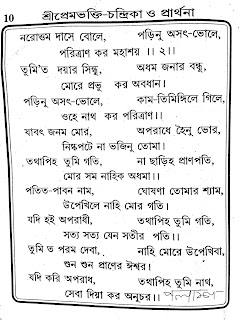 10 শ্রীপ্রেমভক্তি-চন্দ্রিকা ও প্রার্থনা
নরোত্তম দাসে বোলে, পড়িনু অসৎ-ভোলে,
পরিত্রাণ কর মহাশয় ।। ২।।
তুমি'ত দয়ার সিন্ধু, অধম জনার বন্ধু,
মোরে প্রভু কর অবধান।
পড়িনু অসৎ-ভোলে, কাম-তিমিঙ্গিলে গিলে,
ওহে নাথ কর পরিত্রাণ।।
যাবৎ জনম মোর, অপরাধে হৈনু ভোর,
নিষ্কপটে না ভজিনু তোমা।
তথাপিহ তুমি গতি, না ছাড়িহ প্রাণপতি,
মোর সম নাহিক অধমা।।
পতিত-পাবন নাম, ঘোষণা তোমার শ্যাম,
উপেখিলে নাহি মোর গতি।
যদি হই অপরাধী, তথাপিহ তুমি গতি,
সত্য সত্য যেন সতীর পতি।।
তুমি ত পরম দেবা, নাহি মোরে উপেখিবা,
শুন শুন প্রাণের ঈশ্বর।
যদি করি অপরাধ, তথাপিহ তুমি নাথ,
সেবা দিয়া কর অনুচর।।